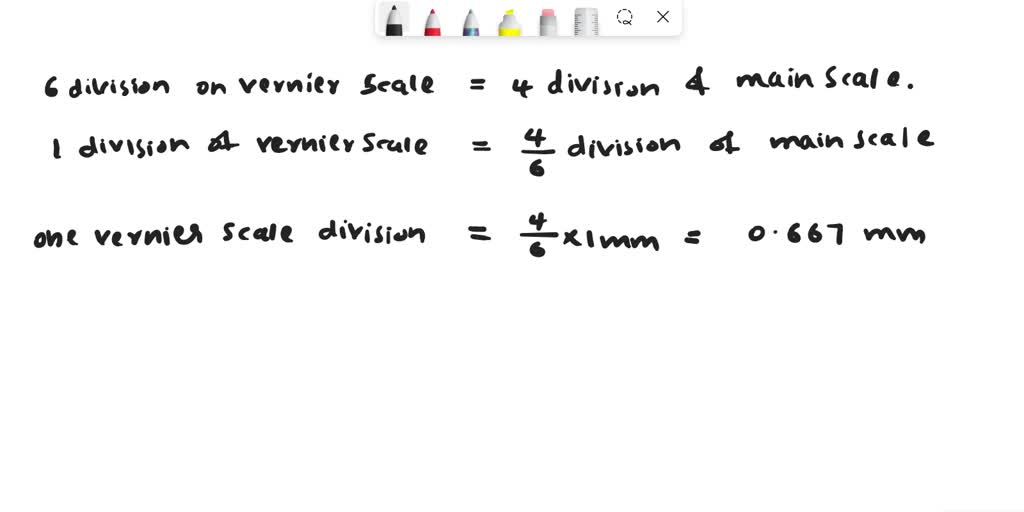 6 division on vernier scale = 4 division of main scale.
1 division of vernier scale = 4/6 division of main scale
one vernier scale division = 4/6 x 1mm = 0.667 mm